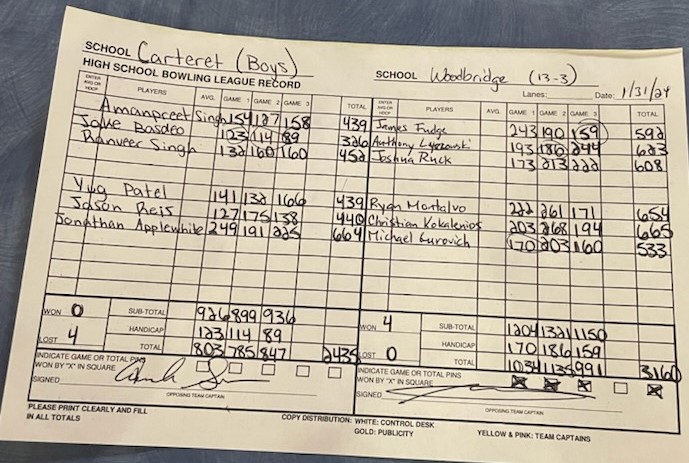 SCHOOL Carteret (Boys)
HIGH SCHOOL BOWLING LEAGUE RECORD
SCHOOL Woodbridge (13-3)
Lanes: Date: 1/31/24
ENTER AVG OR HDCP PLAYERS AVG. GAME 1 GAME 2 GAME 3 TOTAL ENTER AVG OR HDCP PLAYERS AVG. GAME 1 GAME 2 GAME 3 TOTAL
Amanpreet Singh 154 127 158 439 James Fudge 243 190 159 592
123 114 89 326 Anthony 193 186 244 623
Ranveer Singh 132 160 160 452 Joshua Ruck 173 213 222 608
Yug Patel 141 132 166 439 Ryan Montalvo 222 261 171 654
Jason Reis 127 175 138 440 Christian Kokalenios 203 268 194 665
Jonathan Applewhite 249 191 225 664 Michael Gurovich 170 203 160 533
WON 0 SUB-TOTAL 926 899 936 WON 4 SUB-TOTAL 1204 1321 1150
HANDICAP 123 114 89 HANDICAP 170 186 159
LOST 4 TOTAL 803 785 847 2435 LOST 0 TOTAL 1034 1135 991 3160
INDICATE GAME OR TOTAL PINS WON BY "X" IN SQUARE
INDICATE GAME OR TOTAL PINS WON BY "X" IN SQUARE X X X X
SIGNED
OPPOSING TEAM CAPTAIN
SIGNED
OPPOSING TEAM CAPTAIN
PLEASE PRINT CLEARLY AND FILL
IN ALL TOTALS
COPY DISTRIBUTION: WHITE: CONTROL DESK
GOLD: PUBLICITY
YELLOW & PINK: TEAM CAPTAINS